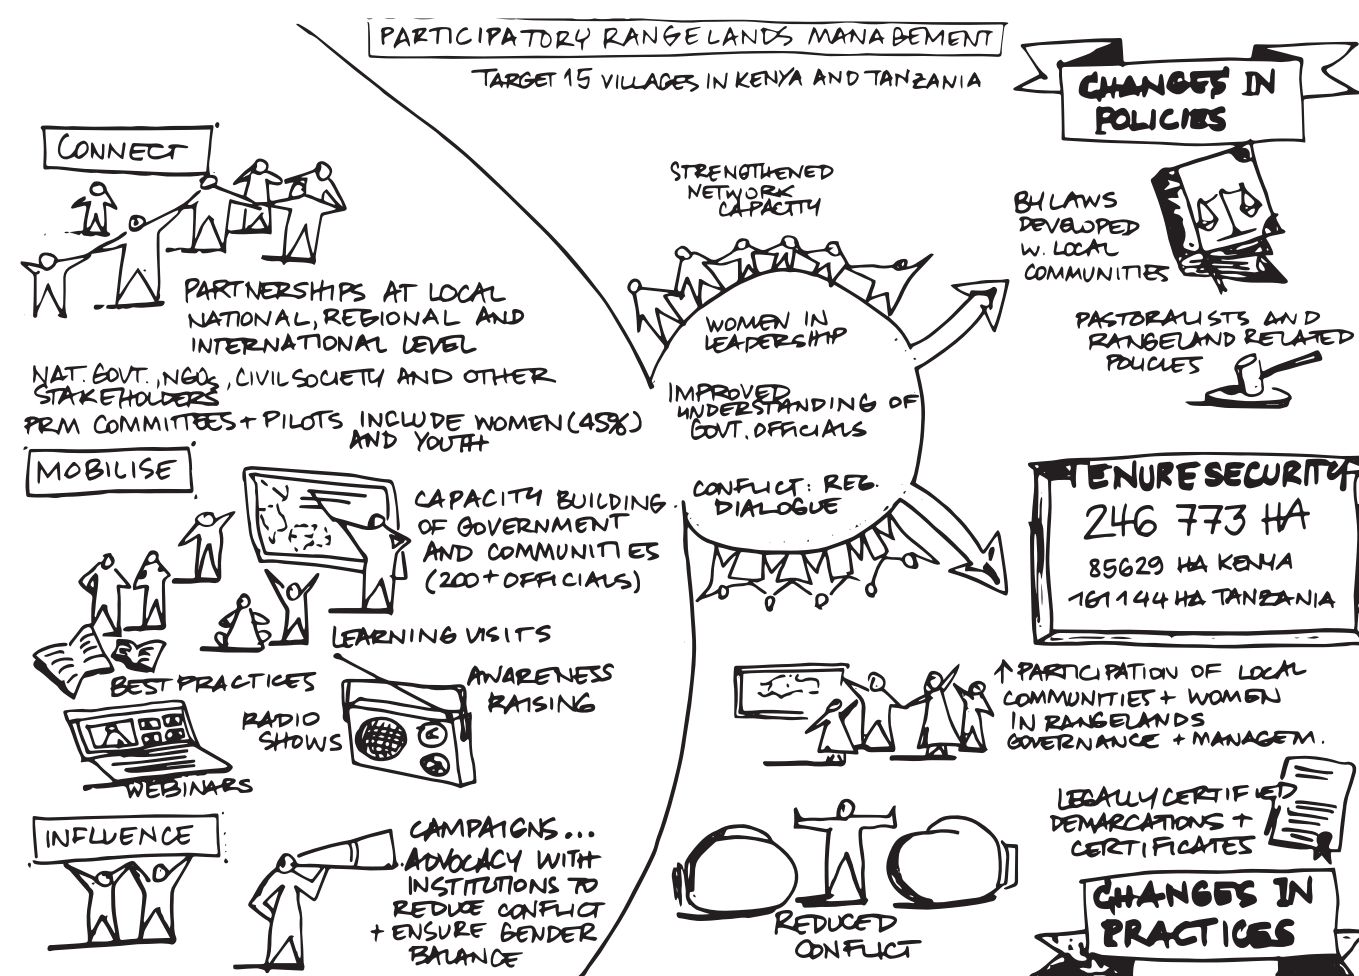 PARTICIPATORY RANGELANDS MANAGEMENT
TARGET 15 VILLAGES IN KENYA AND TANZANIA
CONNECT
PARTNERSHIPS AT LOCAL
NATIONAL, REGIONAL AND
INTERNATIONAL LEVEL
NAT. GOVT., NGOs, CIVIL SOCIETY AND OTHER
STAKEHOLDERS
PRM COMMITTEES + PILOTS INCLUDE WOMEN (45%)
AND YOUTH
MOBILISE
CAPACITY BUILDING
OF GOVERNMENT
AND COMMUNITIES
(200+ OFFICIALS)
LEARNING VISITS
BEST PRACTICES
AWARENESS
RAISING
RADIO
SHOWS
WEBINARS
INFLUENCE
CAMPAIGNS...
ADVOCACY WITH
INSTITUTIONS TO
REDUCE CONFLICT
+ ENSURE GENDER
BALANCE
STRENGTHENED
NETWORK
CAPACITY
WOMEN IN
LEADERSHIP
IMPROVED
UNDERSTANDING OF
GOVT. OFFICIALS
CONFLICT: REG.
DIALOGUE
CHANGES IN
POLICIES
BYLAWS
DEVELOPED
W. LOCAL
COMMUNITIES
PASTORALISTS AND
RANGELAND RELATED
POLICIES
TENURE SECURITY
246 773 HA
85629 HA KENYA
161144 HA TANZANIA
↑ PARTICIPATION OF LOCAL
COMMUNITIES + WOMEN
IN RANGELANDS
GOVERNANCE + MANAGEM.
LEGALLY CERTIFIED
DEMARCATIONS +
CERTIFICATES
REDUCED
CONFLICT
CHANGES IN
PRACTICES